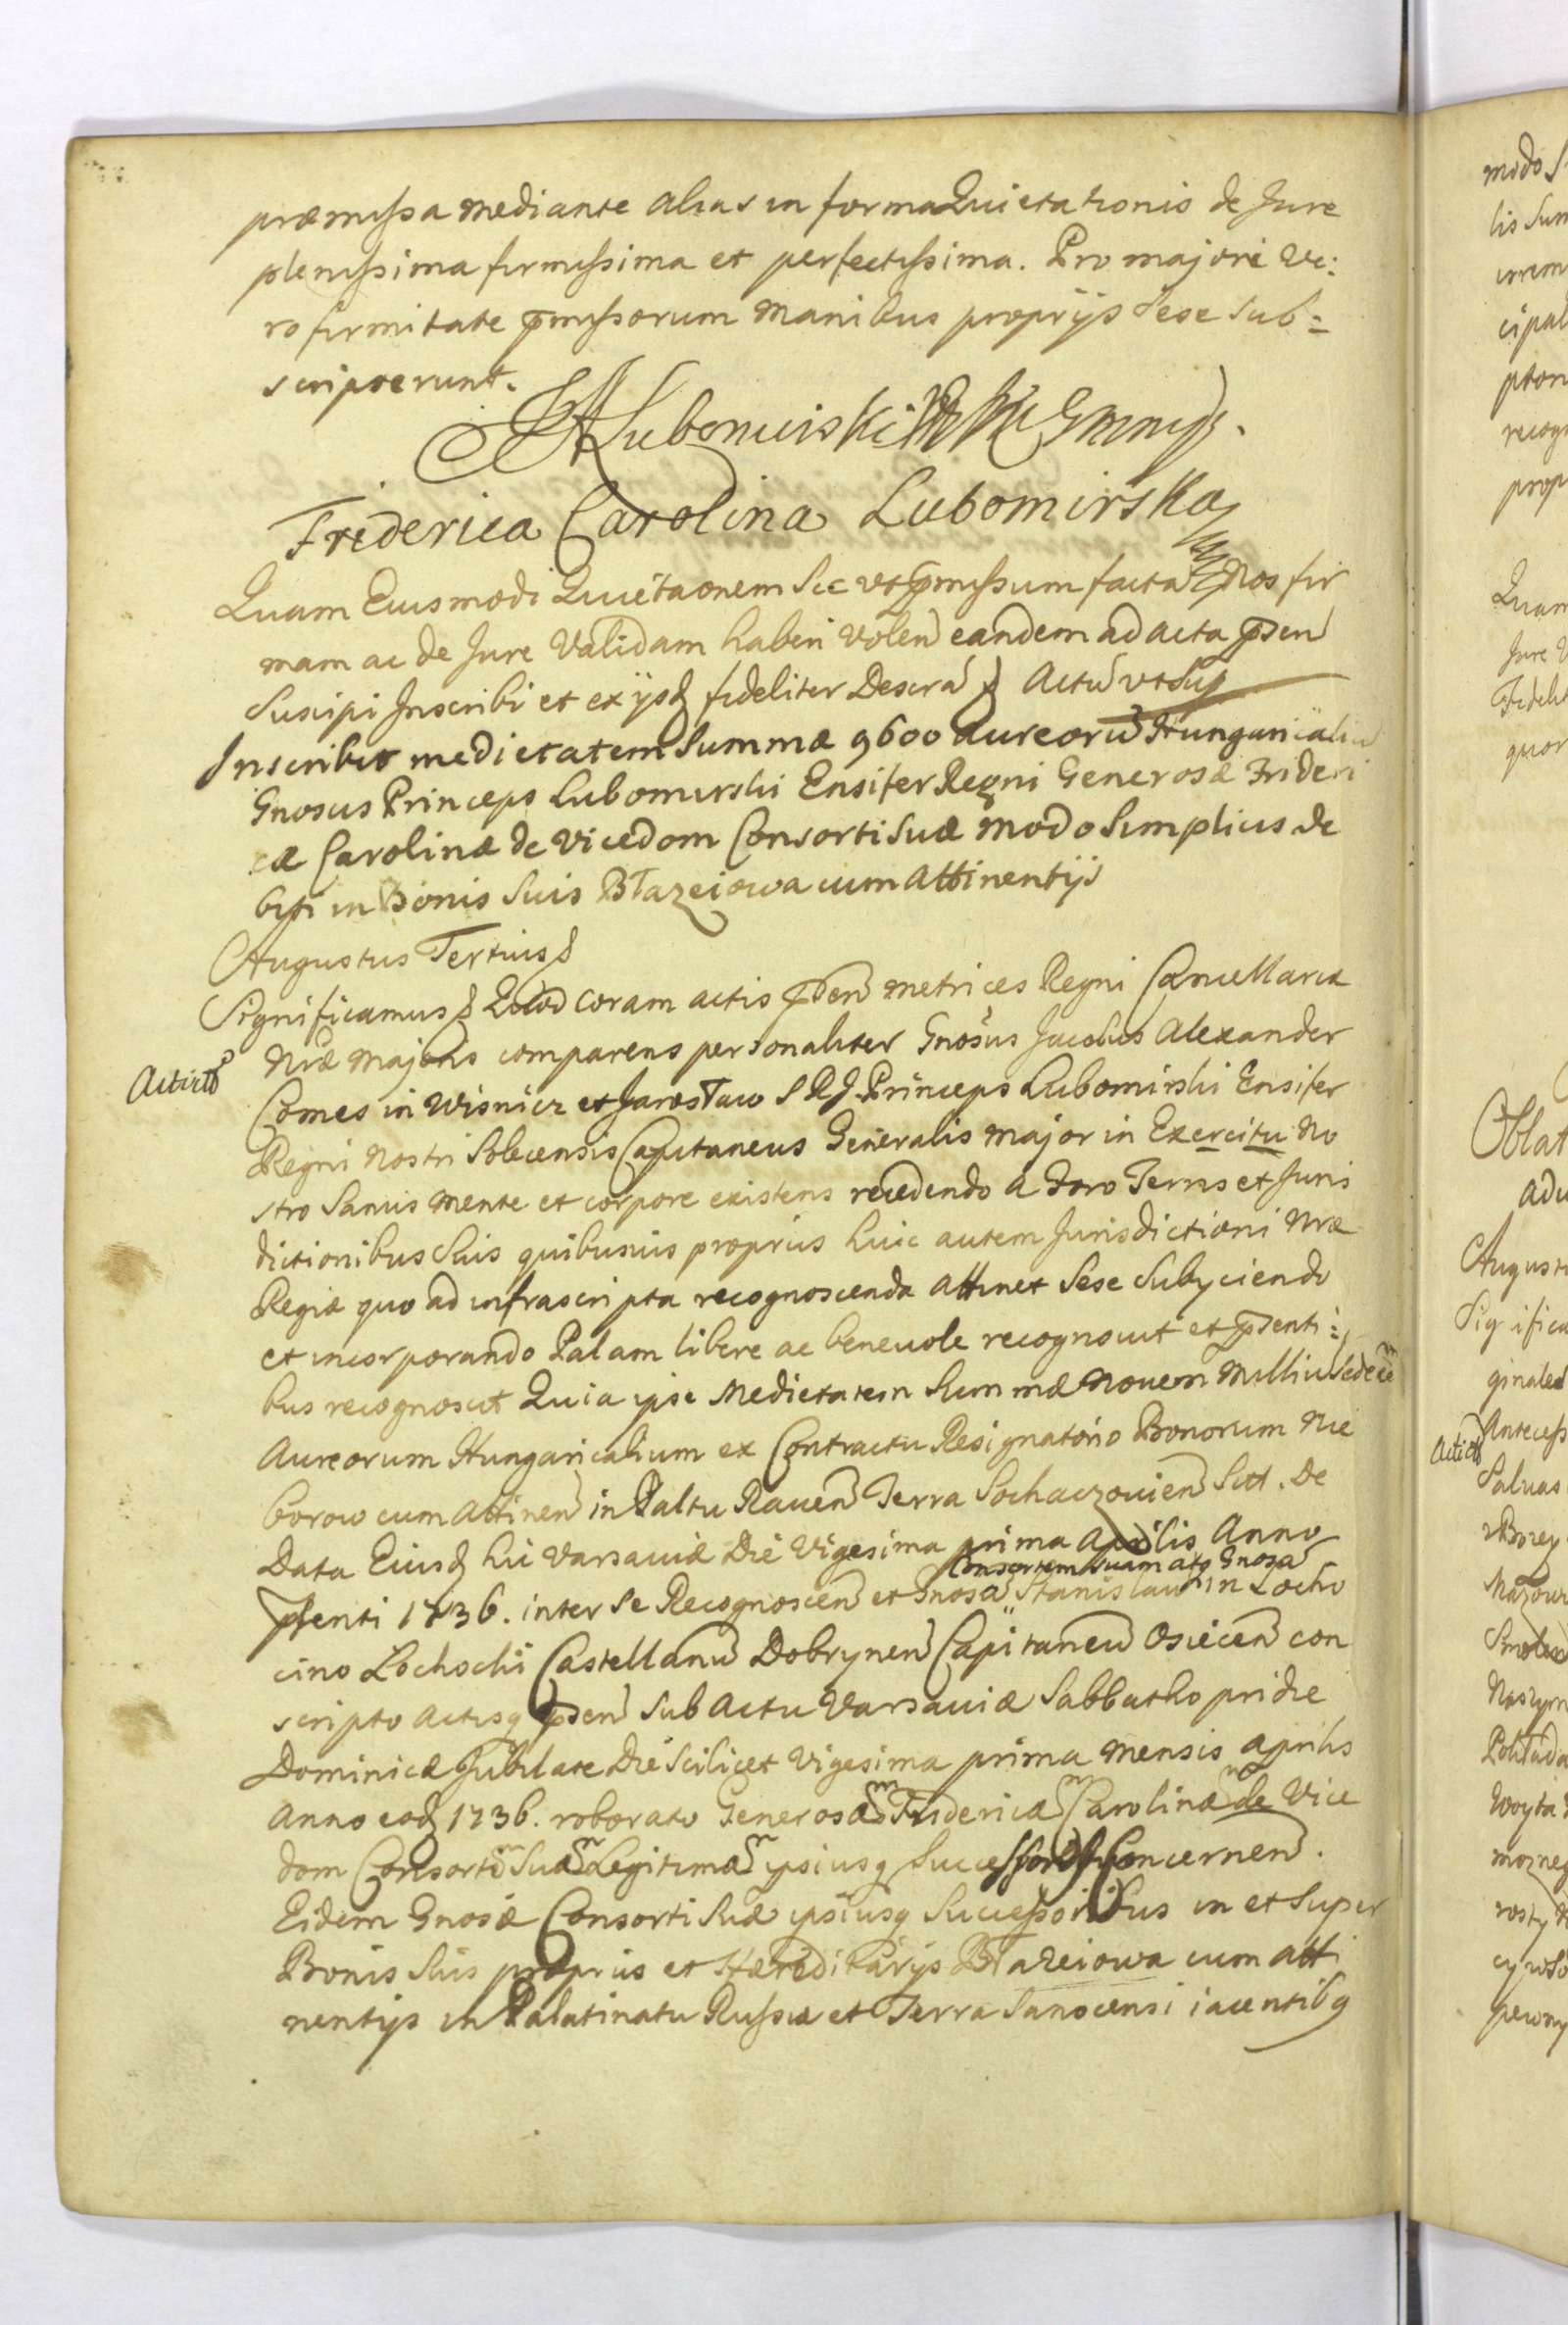 præmissa mediante alias in forma Quietationis de Jure
plenissima firmissima et perfectissima. Pro majori ve:
ro firmitate pmissorum manibus proprijs sese sub=
scripserunt.
Lubomirski
Friderica Carolina Lubomirska
Quam Eiusmodi Quietaonem sic vt pmissum facta Nos fir
mam ac de Jure Validam haberi volen eandem ad acta psen
suscipi Inscribi et ex ijsd fideliter Descra Actu vt sup
Inscribit medietatem Summæ 9600 aureoru Hungaricaliu
Gnosus Princeps Lubomirski Ensifer Regni Generosæ Frideri
cæ Carolinæ de Vicedom Consorti suæ modo simplicis de
biti in Bonis suis Błazeiowa cum attinentijs
Augustus Tertius
Significamus Quod coram actis psen metrices Regni Cancellariæ
Nræ majoris comparens personaliter Gnosus Jacobus Alexander
Comes in Wisnicz et Jarosław S R J Princeps Lubomirski Ensifer
Regni Nostri Solecensis Capitaneus Generalis major in Exercitu No
stro sanus mente et corpore existens recedendo a foro Terris et Juris
dictionibus suis quibusuis proprijs huic autem Jurisdictioni Nræ
Regiæ quo ad infrascripta recognoscenda attinet sese subijciendo
et incorporando Palam libere ac beneuole recognouit et psenti=
bus recognoscit Quia ipse Medietatem Summæ Nouem Milliu Sedecem
Aureorum Hungaricalium ex Contractu Resignatorio Bonorum Nie
borow cum Attinen in Paltu Rauen Terra Sochaczouien Sitt. De
Data Eiusd hic Varsauiæ Die Vigesima prima Aprilis Anno
Consortem suam atq Gnosa
psenti 1736. inter se Recognoscen et Gnosa Stanislau in Locho
cino Lochocki Castellanu Dobrynen Capitaneu Osiecen con
scripto Actisq psen sub Actu Varsauiæ Sabbatho pridie
Dominicæ Jubilate Die scilicet vigesima prima mensis aprilis
anno eod 1736. roborato Generosam Fridericam Carolinam de Vice
dom Consortem Suam Legitimam ipsiusq Successores Concernen.
Eidem Gnosæ Consorti suæ ipsiusq Successoribus in et super
Bonis suis proprijs et Hæreditarijs Błazeiowa cum atti
nentijs in Palatinatu Russiæ et Terra Sanocensi iacentibq
Acticto